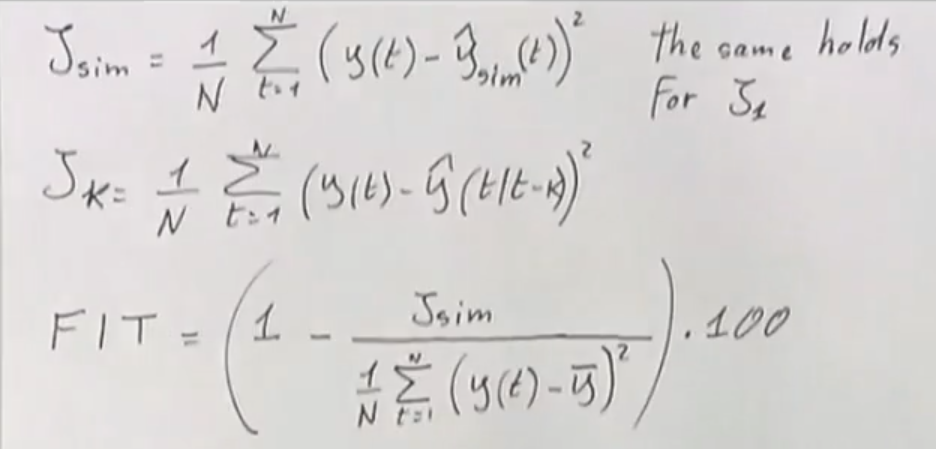 J_sim = 1/N ∑_{t=1}^{N} (y(t) - ŷ_sim(t))² the same holds
For J_1
J_K = 1/N ∑_{t=1}^{N} (y(t) - ŷ(t|t-k))²
FIT = (1 - J_sim / (1/N ∑_{t=1}^{N} (y(t) - ȳ)²)) · 100